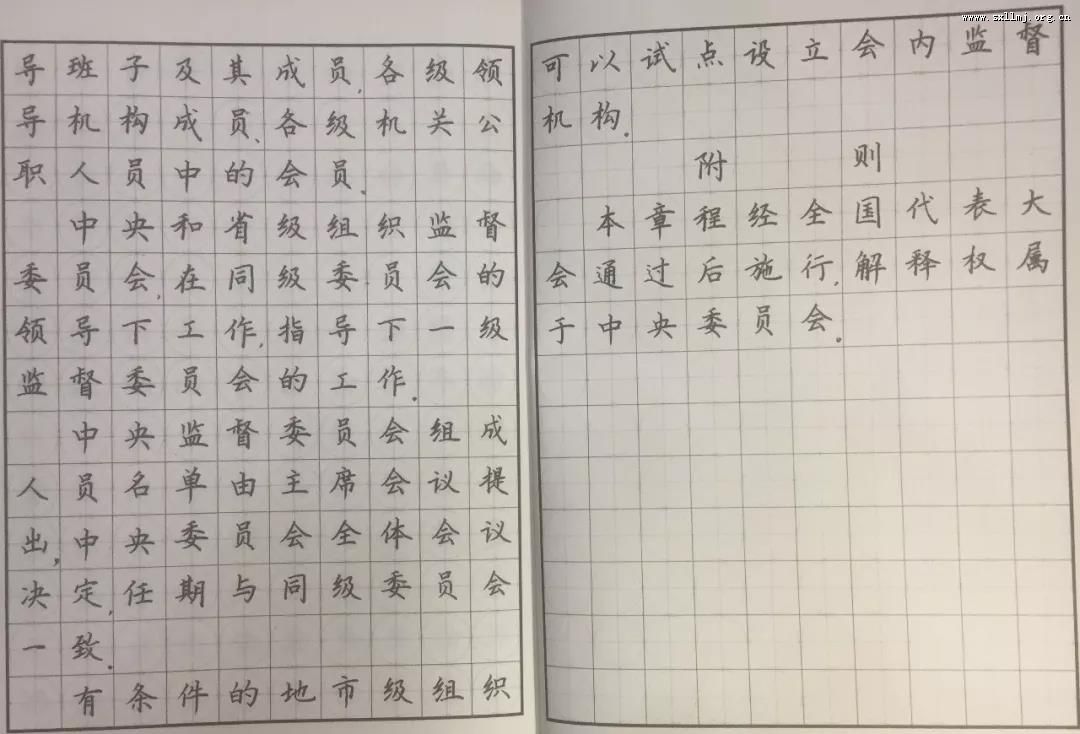 www.sxllmj.org.cn
导班子及其成员,各级领
导机构成员、各级机关公
职人员中的会员。
中央和省级组织监督
委员会,在同级委员会的
领导下工作,指导下一级
监督委员会的工作。
中央监督委员会组成
人员名单由主席会议提
出,中央委员会全体会议
决定,任期与同级委员会
一致。
有条件的地市级组织
可以试点设立会内监督
机构。
附则
本章程经全国代表大
会通过后施行,解释权属
于中央委员会。